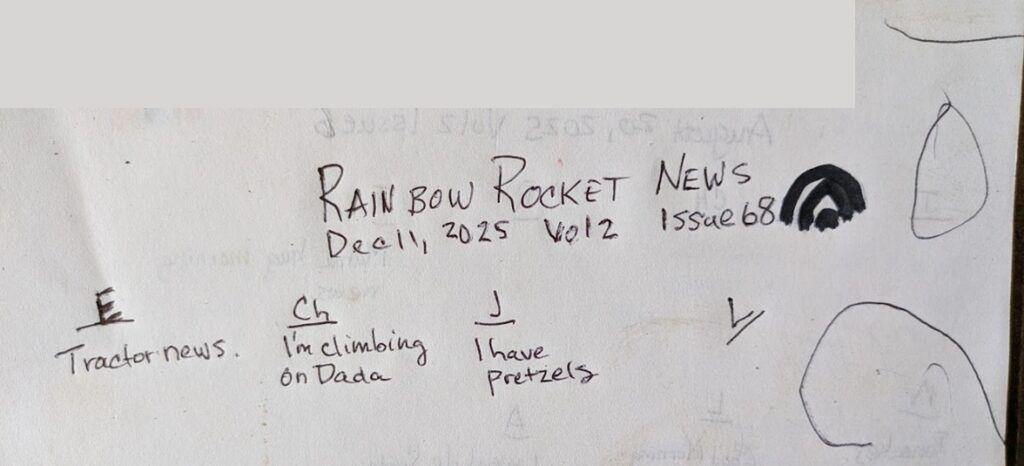 RAINBOW ROCKET NEWS
Dec 11, 2025 Vol 2 Issue 68
E
Tractor news.
Ch
I'm climbing
on Dada
J
I have
pretzels
L